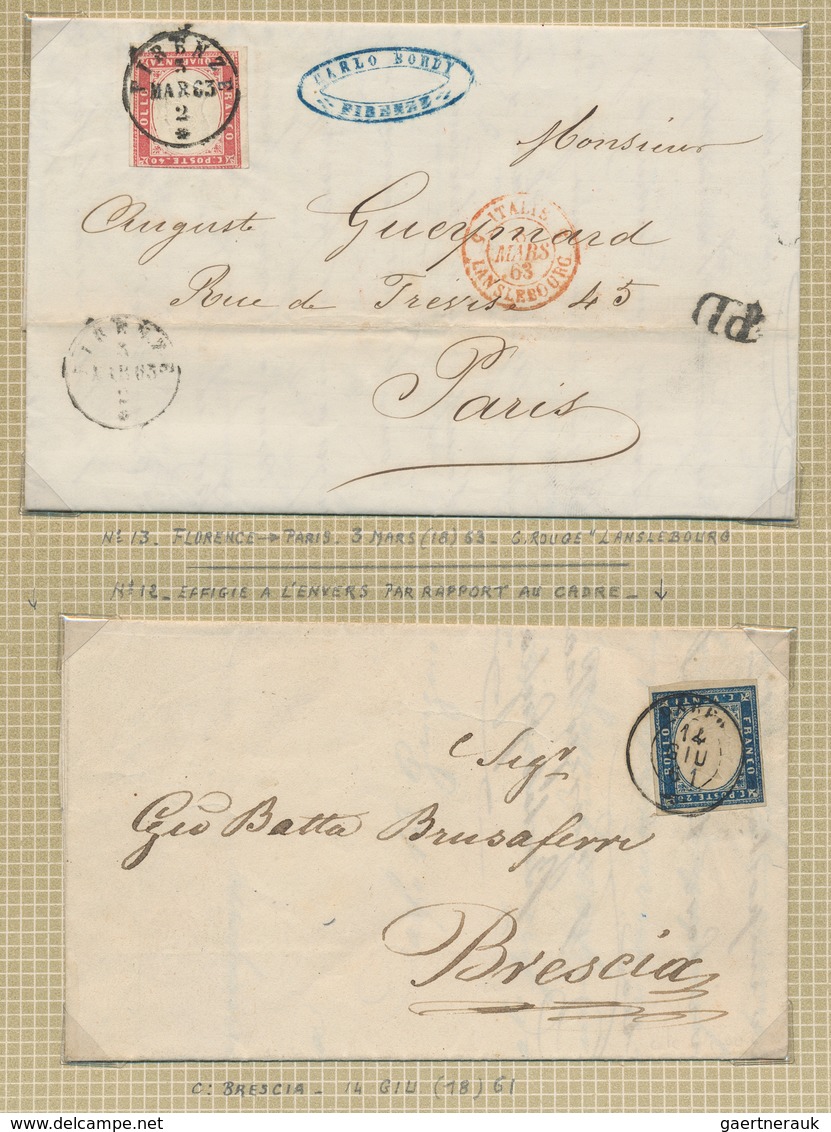 FIRENZE
3
MAR 63
2
*
QUARANTA
BOLLO
FRANCO
C. POSTE. 40
CARLO BORDI
FIRENZE
Monsieur
Auguste Gueymard
Rue de Trévis, 45
Paris
ITALIE
MARS
63
LANSLEBOURG
PD
3
63
2
No 13. FLORENCE → PARIS. 3 MARS (18) 63. C. ROUGE "LANSLEBOURG
No 12. EFFIGIE A L'ENVERS PAR RAPPORT AU CADRE. ↓
C. VENTI
BOLLO
FRANCO
C. POSTE 20
14
GIU
Sigr
Gio Batta Brusaferri
Brescia
C: BRESCIA - 14 GIU (18) 61
gaertnerauk